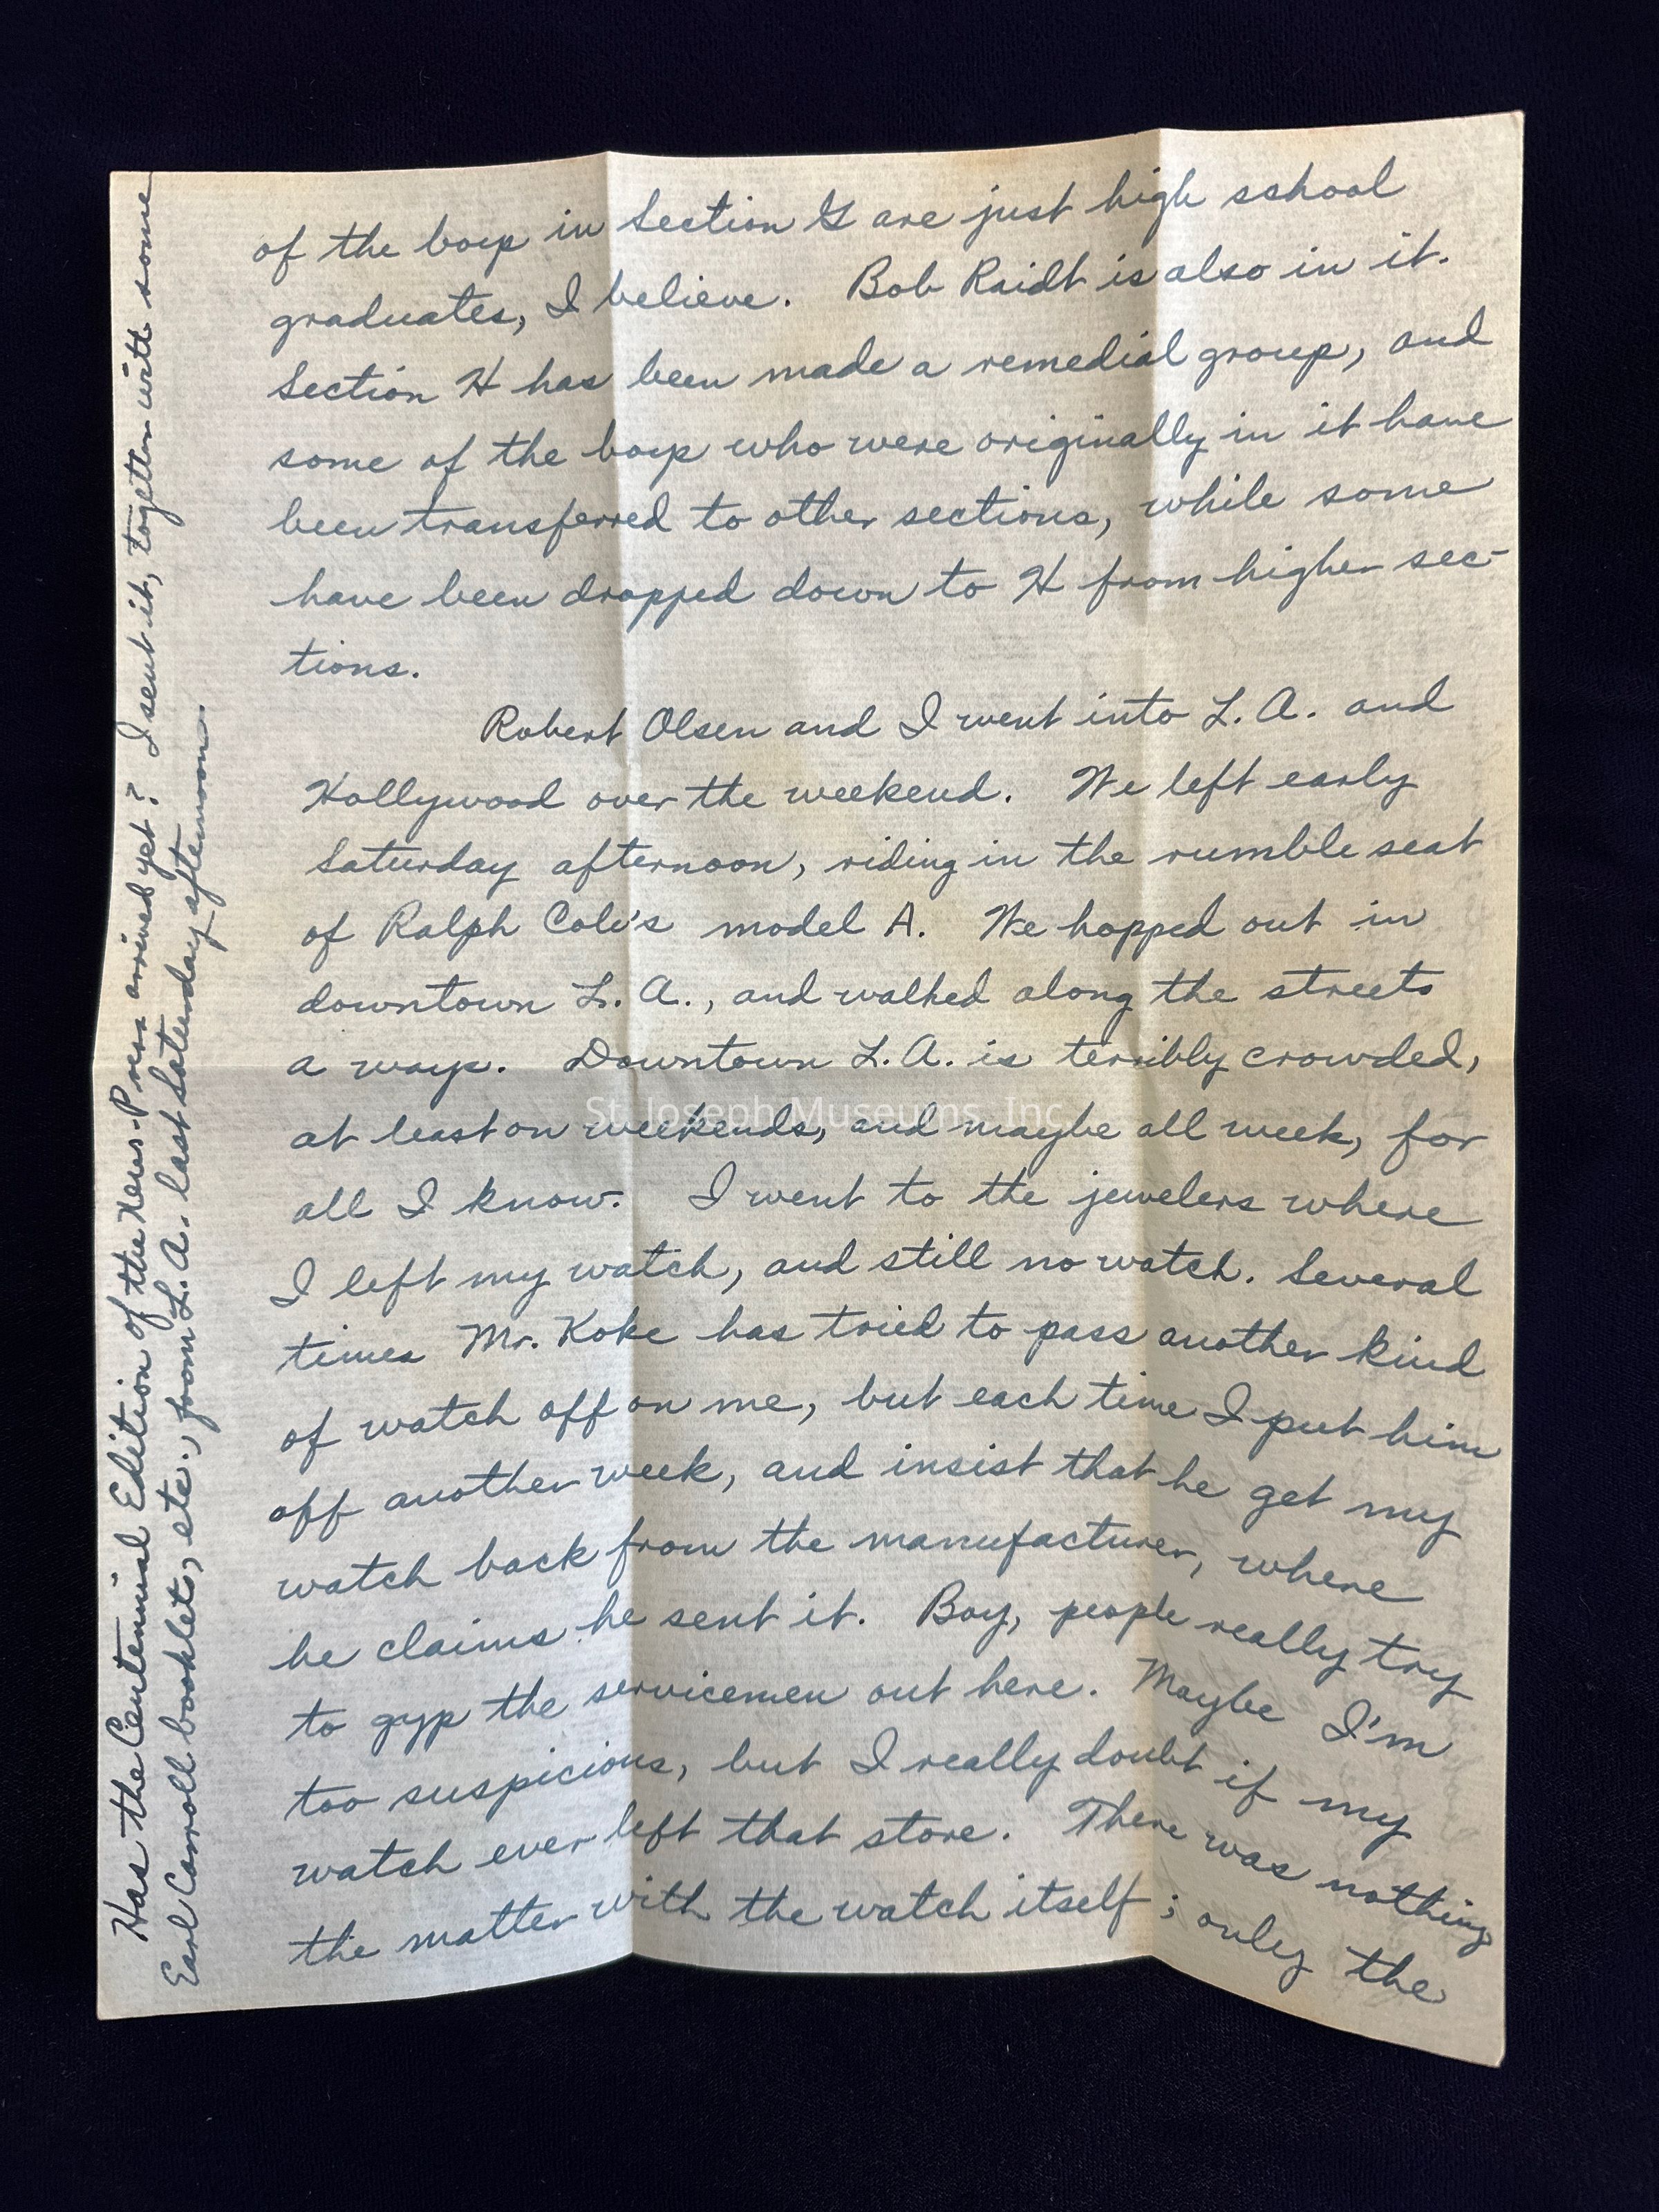 of the boys in Section G are just high school
graduates, I believe. Bob Raidt is also in it.
Section H has been made a remedial group, and
some of the boys who were originally in it have
been transferred to other sections, while some
have been dropped down to H from higher sec-
tions.
Robert Olsen and I went into L.A. and
Hollywood over the weekend. We left early
Saturday afternoon, riding in the rumble seat
of Ralph Cole's model A. We hopped out in
downtown L.A., and walked along the streets
a ways. Downtown L.A. is terribly crowded,
at least on weekends, and maybe all week, for
all I know. I went to the jewelers where
I left my watch, and still no watch. Several
times Mr. Koke has tried to pass another kind
of watch off on me, but each time I put him
off another week, and insist that he get my
watch back from the manufacturer, where
he claims he sent it. Boy, people really try
to gyp the servicemen out here. Maybe I'm
too suspicious, but I really doubt if my
watch ever left that store. There was nothing
the matter with the watch itself; only the
Has the Centennial Edition of the News-Press arrived yet? I sent it, together with some
Earl Carroll booklets, etc., from L.A. last Saturday afternoon.
St. Joseph Museums, Inc